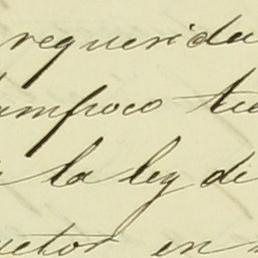 requerida
tampoco tie
la ley de
en